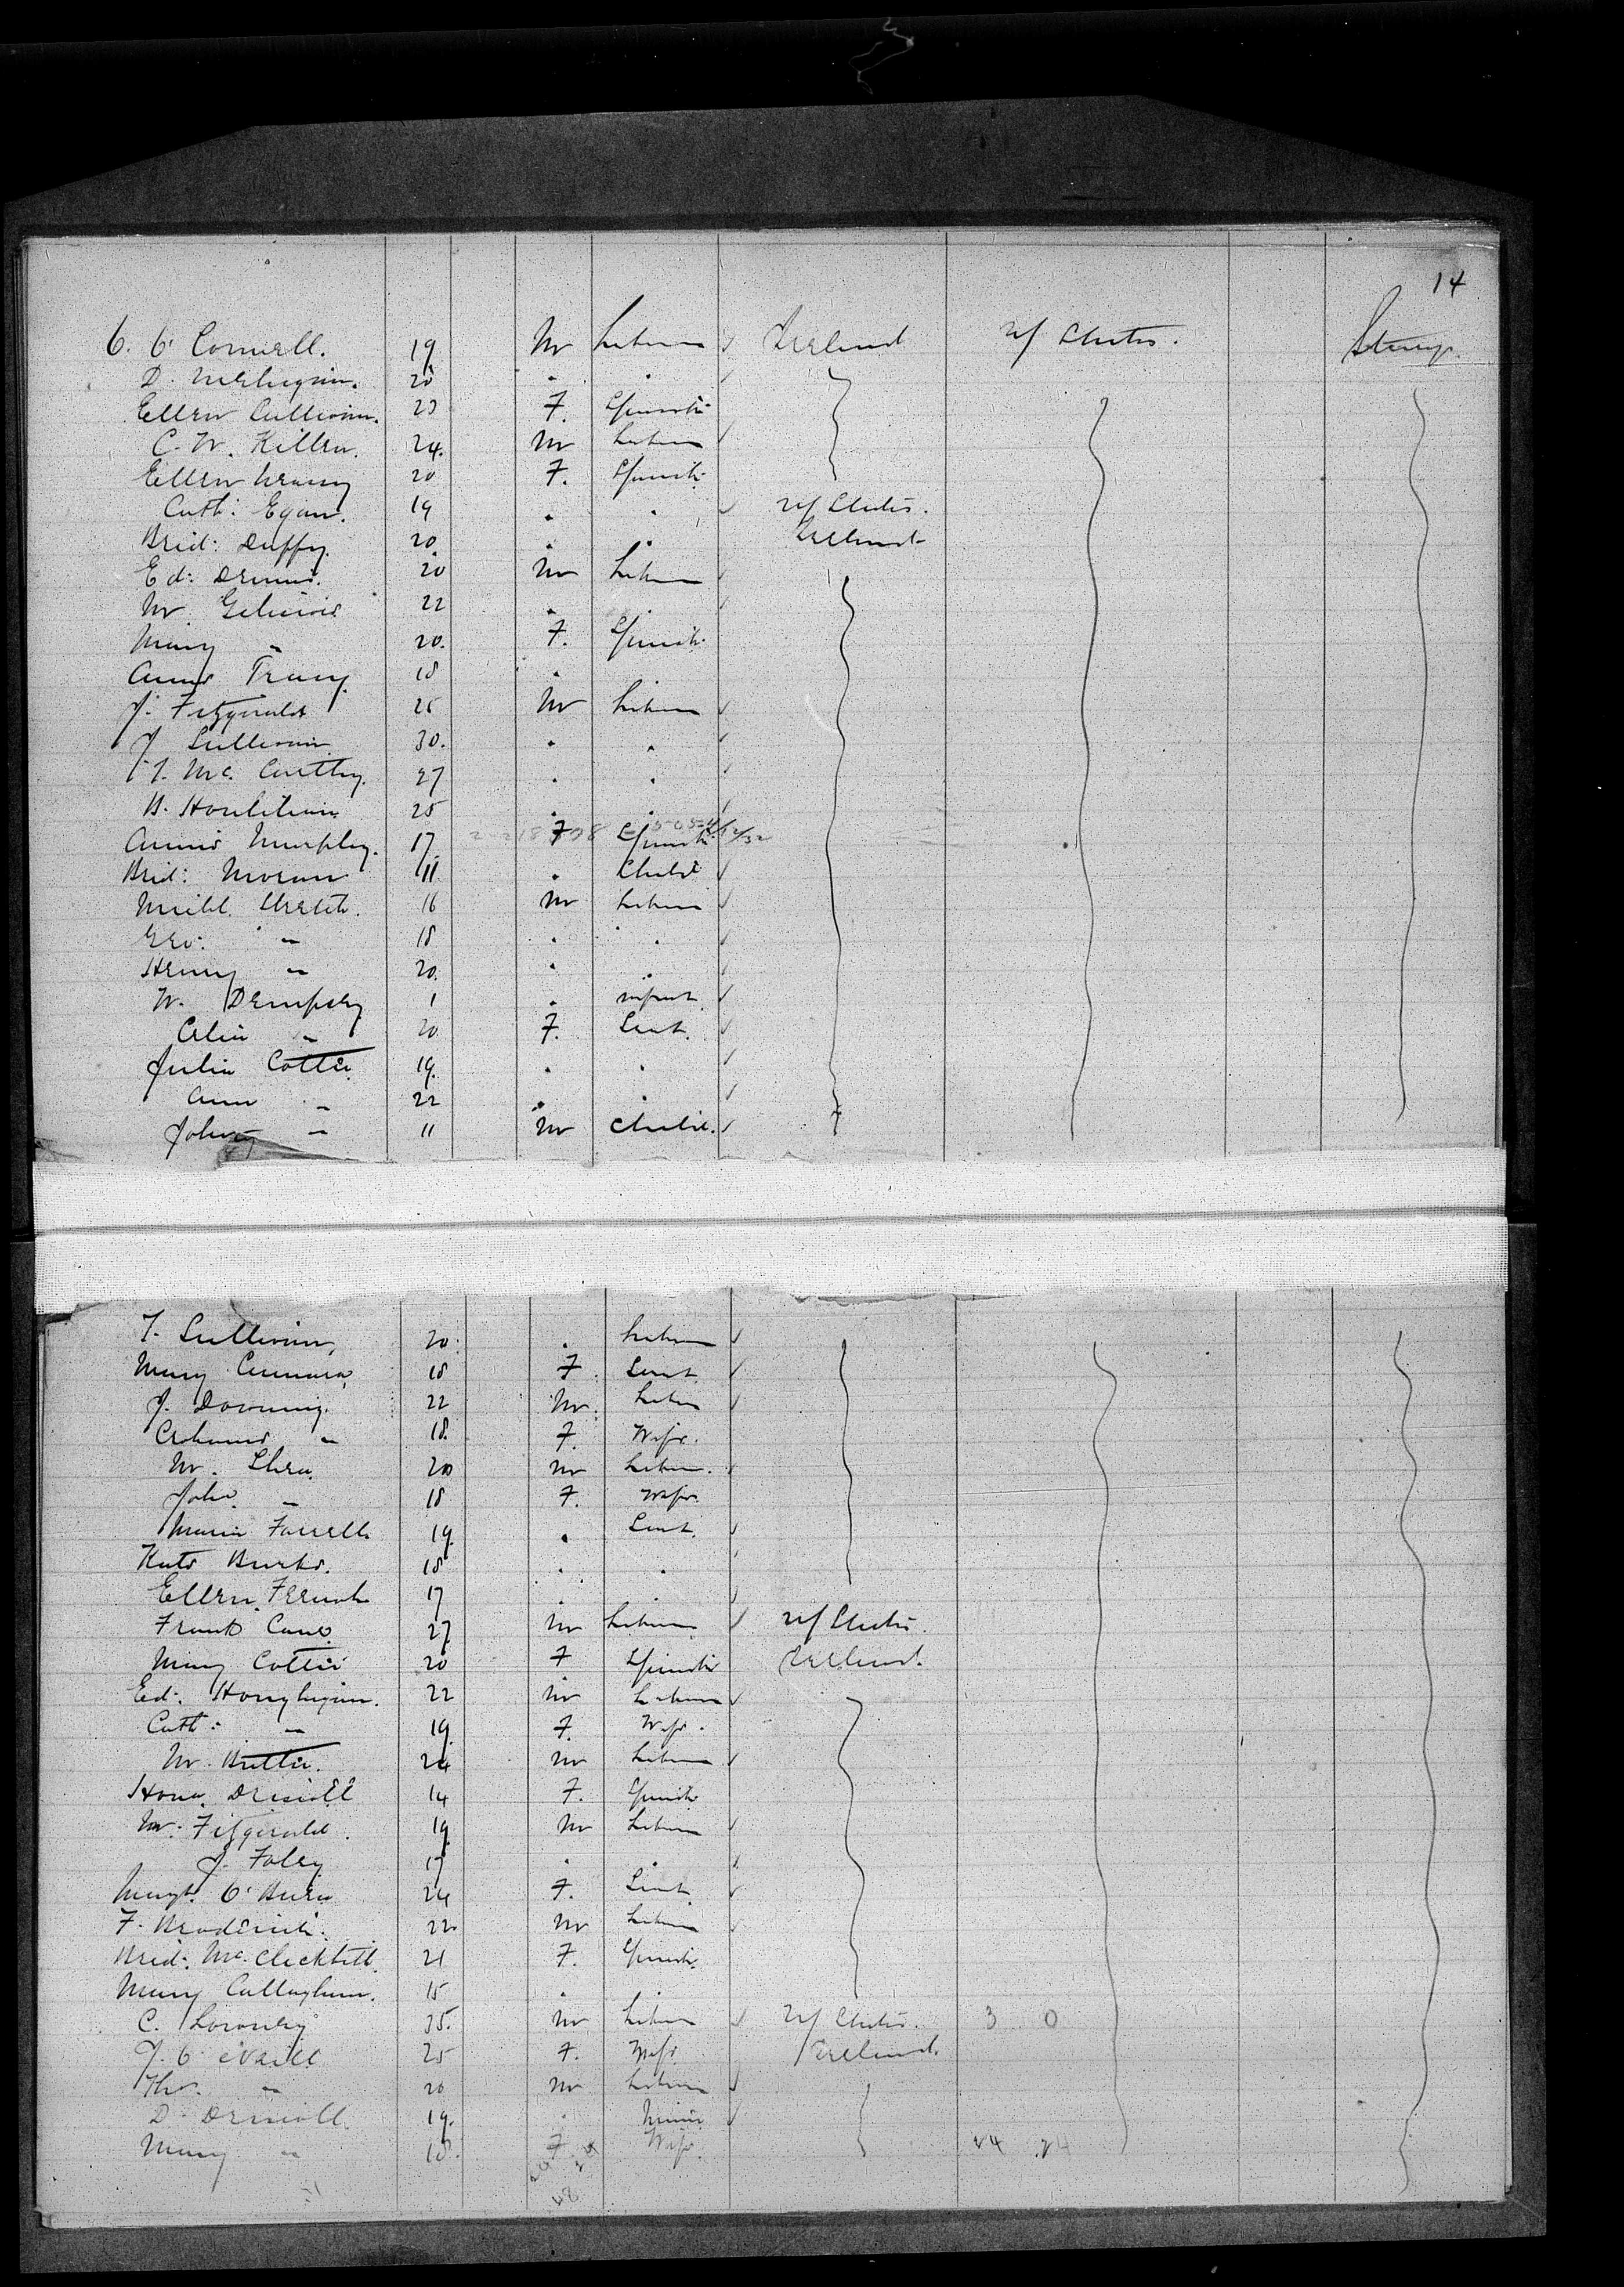 14
C. O'Connell. 19 M Laborer ✓ Ireland U/States. Steerage
D. McGuigan. 20 " " ✓
Ellen Sullivan. 20 F. Spinster
C. W. Killen. 24. M Laborer ✓
Ellen 20 F. Spinster
Cath: Egan. 19 " " ✓ U/States.
Brid: Duffy. 20 " " Ireland
Ed: 20 M Laborer ✓
M. 22 " ✓
Mary " 20. F. Spinster
Annie Tracy. 18 "
J. Fitzgerald 25 M Laborer ✓
J Sullivan 30. " " ✓
J. McCarthy. 27 " " ✓
B. Houlihan 25 " " ✓
Annie Murphy. 17 F Spinster
Brid: Moran 11 " Child ✓
Michl. 16 M Laborer ✓
Geo: " 18 " " ✓
Henry " 20. " " ✓
W. Dempsey 1 " infant ✓
Celia " 20 F. Servt. ✓
Julia Cotter 19. " " ✓
Ann " 22 " ✓
John " 11 M Child. ✓
T. Sullivan, 20 " Laborer ✓
Mary 18 F. Servt. ✓
J. Downing. 22 M. Laborer ✓
Johanna " 18. F. Wife.
M. Shea. 20 M Laborer. ✓
John " 18 F. Wife.
Maria Farrell 19. " Servt. ✓
Kate Burke. 18 " " ✓
Ellen French 17 " ✓
Frank Cane 27 M Laborer ✓ U/States.
Mary Cotter 20 F Spinster Ireland.
Ed: Houghigan. 22 M Laborer ✓
Cath: " 19 F. Wife.
M. Butler. 24 M Laborer ✓
Hona. Driscoll 14 F. Spinster
M. Fitzgerald. 19 M Laborer ✓
J. Foley 17 " " ✓
Margt. O'Brien 24 F. Servt. ✓
F. Broderick. 22 M Laborer ✓
Brid: Mc. 21 F. Spinster.
Mary Callaghan. 15 "
C. Lowney 35. M Laborer ✓ U/States. 3 0
J. O'Neill 25 F. Wife. Ireland.
Tho. " 20 M Laborer ✓
D. Driscoll. 19. " Miner ✓
Mary " 18. F. Wife. 24 24
48